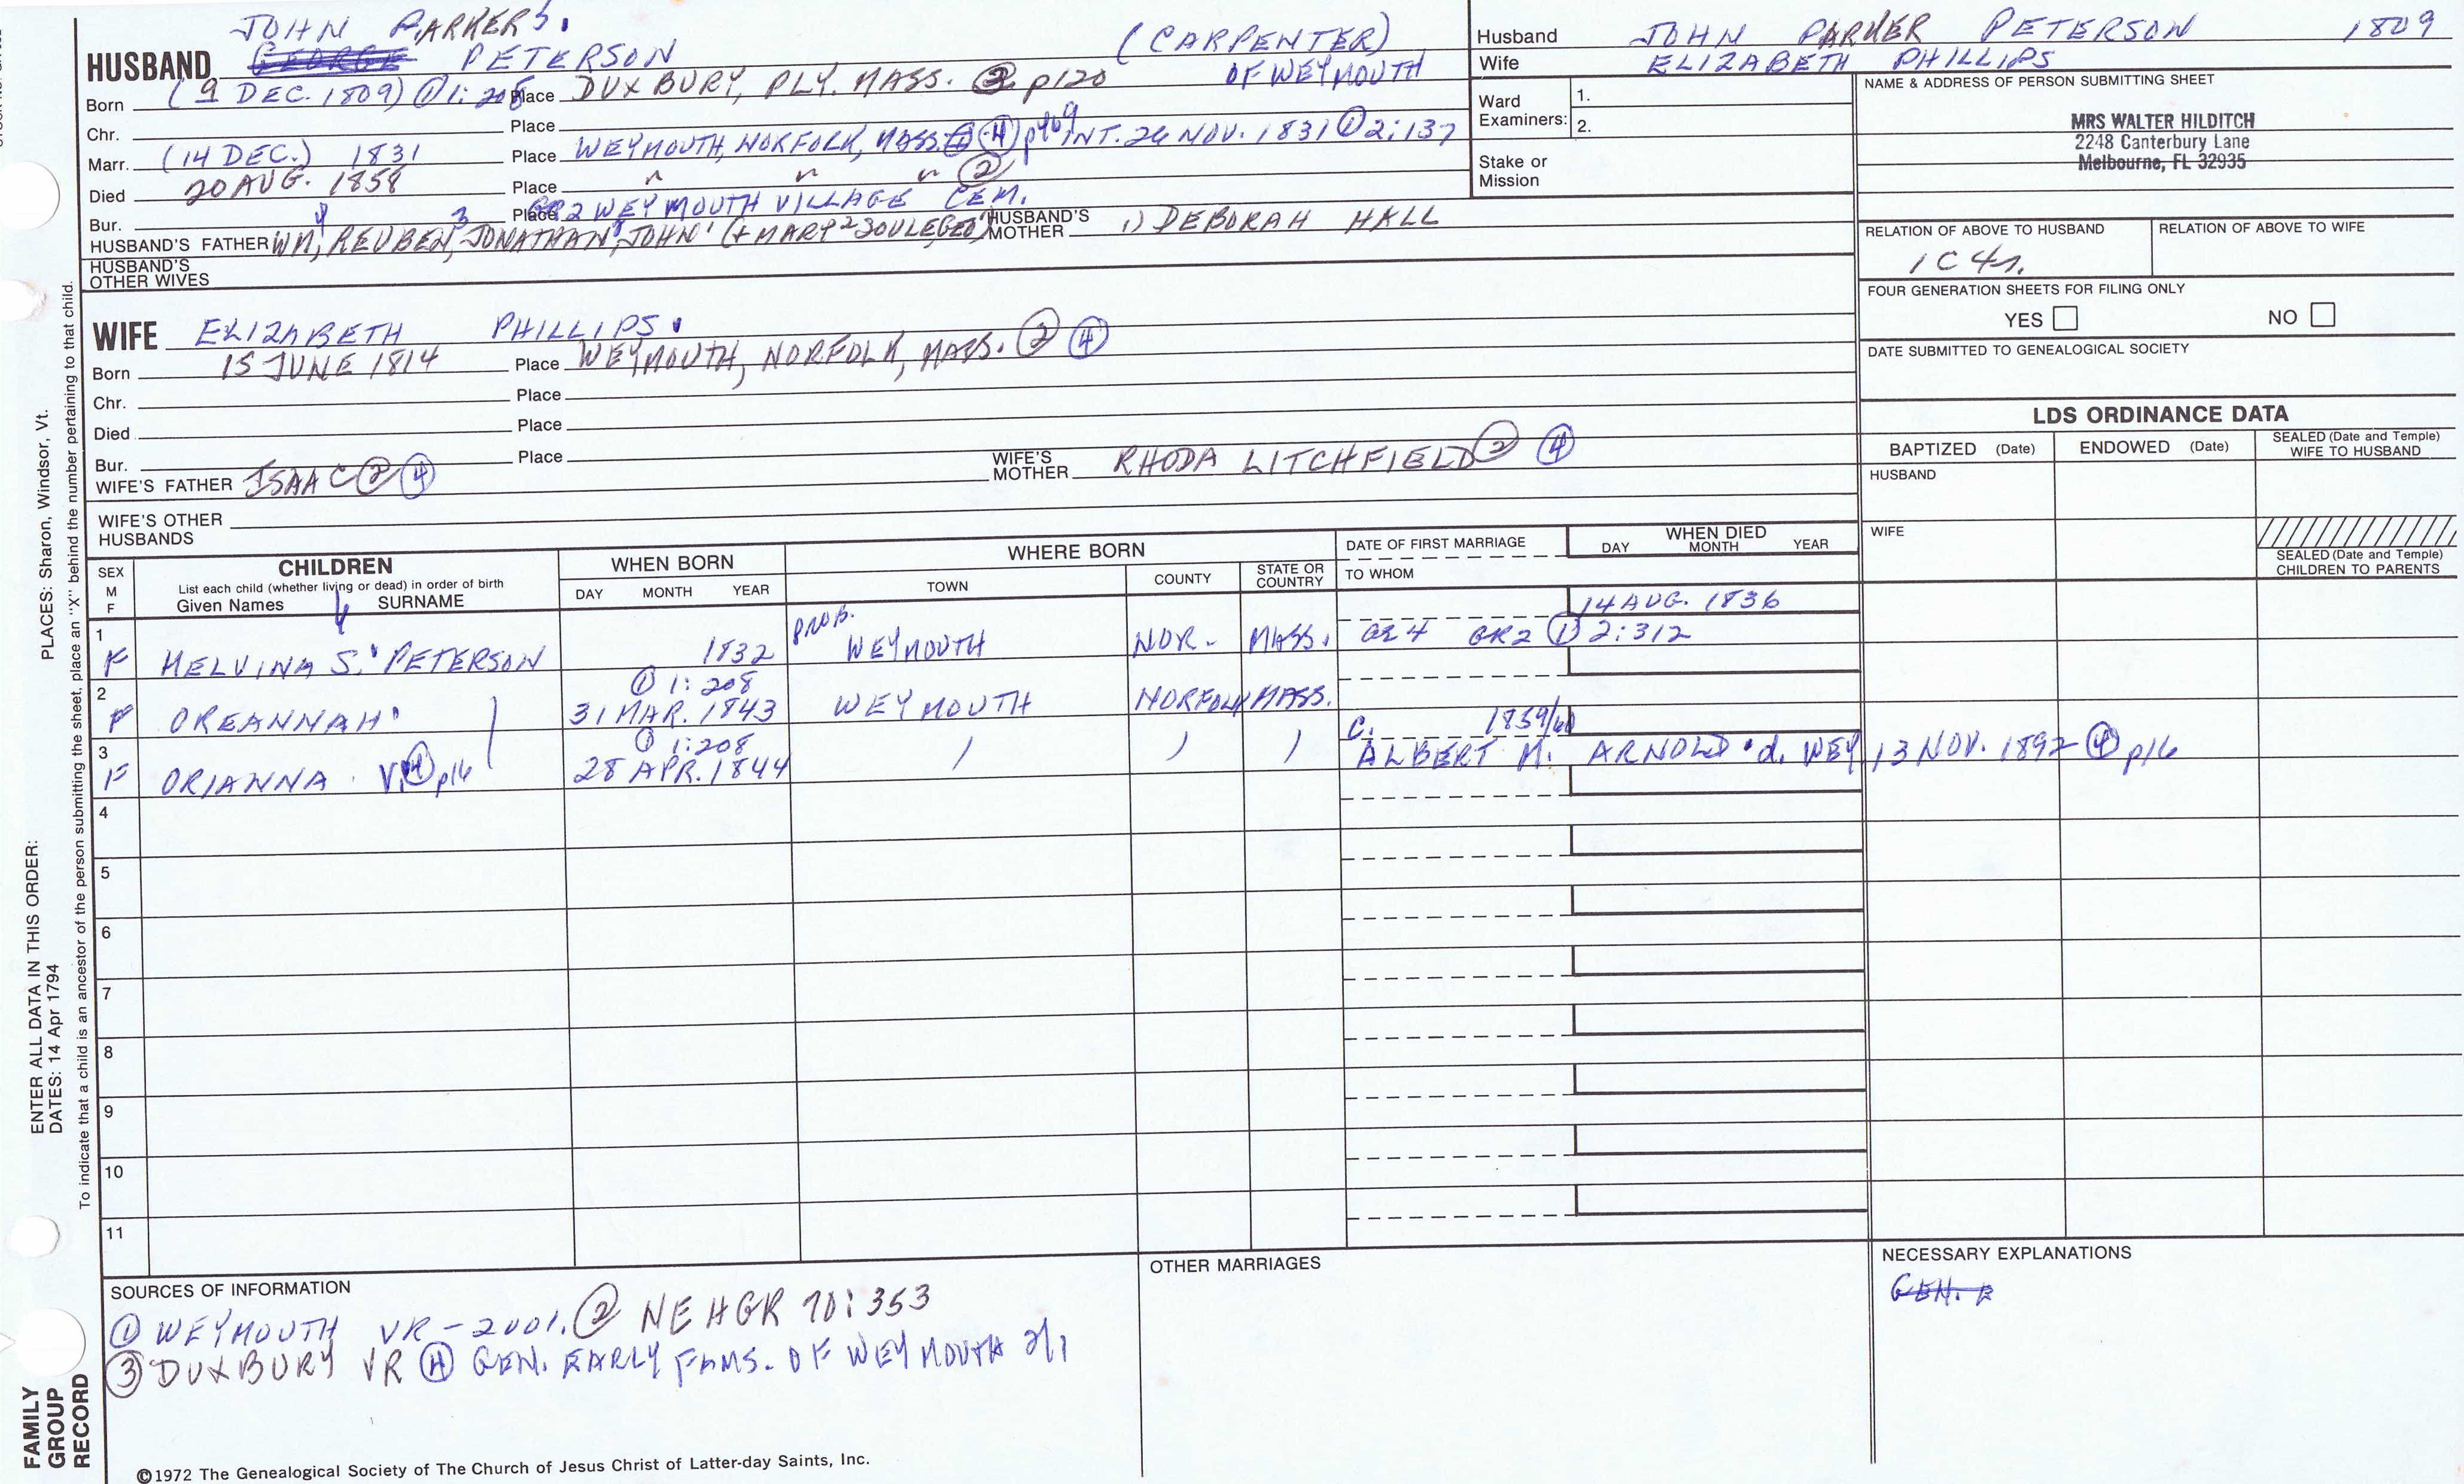 JOHN PARKER 5.
HUSBAND GEORGE PETERSON (CARPENTER)
Born (9 DEC. 1809) ① 1:208 Place DUXBURY, PLY. MASS. ③ p120 OF WEYMOUTH
Chr. Place
Marr. (14 DEC.) 1831 Place WEYMOUTH, NORFOLK, MASS. ④ p469 INT. 26 NOV. 1831 ① 2:137
Died 20 AUG. 1858 Place " " " ②
Bur. Place GR2 WEYMOUTH VILLAGE CEM.
HUSBAND'S FATHER WM,4 REUBEN,3 JONATHAN,2 JOHN1 (+ MARY2 SOULE, GEO1) HUSBAND'S MOTHER 1) DEBORAH HALL
HUSBAND'S OTHER WIVES
WIFE ELIZABETH PHILLIPS
Born 15 JUNE 1814 Place WEYMOUTH, NORFOLK, MASS. ② ④
Chr. Place
Died Place
Bur. Place
WIFE'S FATHER ISAAC ② ④ WIFE'S MOTHER RHODA LITCHFIELD ② ④
WIFE'S OTHER HUSBANDS
Husband JOHN PARKER PETERSON 1809
Wife ELIZABETH PHILLIPS
Ward Examiners: 1.
2.
Stake or Mission
NAME & ADDRESS OF PERSON SUBMITTING SHEET
MRS WALTER HILDITCH
2248 Canterbury Lane
Melbourne, FL 32935
RELATION OF ABOVE TO HUSBAND RELATION OF ABOVE TO WIFE
1C4r.
FOUR GENERATION SHEETS FOR FILING ONLY
YES NO
DATE SUBMITTED TO GENEALOGICAL SOCIETY
LDS ORDINANCE DATA
BAPTIZED (Date) ENDOWED (Date) SEALED (Date and Temple) WIFE TO HUSBAND
HUSBAND
WIFE
SEALED (Date and Temple) CHILDREN TO PARENTS
SEX M F CHILDREN WHEN BORN WHERE BORN DATE OF FIRST MARRIAGE WHEN DIED
List each child (whether living or dead) in order of birth
Given Names SURNAME DAY MONTH YEAR TOWN COUNTY STATE OR COUNTRY TO WHOM DAY MONTH YEAR
1 PROB. 14 AUG. 1836
F MELVINA S. PETERSON 1832 WEYMOUTH NOR. MASS. AE 4 GR2 ① 2:312
2 ① 1:208
F OREANNAH 31 MAR. 1843 WEYMOUTH NORFOLK MASS.
3 ① 1:208 C. 1859/60
F ORIANNA V. ④ p16 28 APR. 1844 ALBERT M. ARNOLD d. WEY 13 NOV. 1892 ④ p16
4
5
6
7
8
9
10
11
SOURCES OF INFORMATION
① WEYMOUTH VR - 2001. ② NEHGR 70:353
③ DUXBURY VR ④ GEN. EARLY FAMS. OF WEYMOUTH
OTHER MARRIAGES
NECESSARY EXPLANATIONS
GEN.
©1972 The Genealogical Society of The Church of Jesus Christ of Latter-day Saints, Inc.
FAMILY GROUP RECORD
ENTER ALL DATA IN THIS ORDER:
DATES: 14 Apr 1794
PLACES: Sharon, Windsor, Vt.
To indicate that a child is an ancestor of the person submitting the sheet, place an "X" behind the number pertaining to that child.